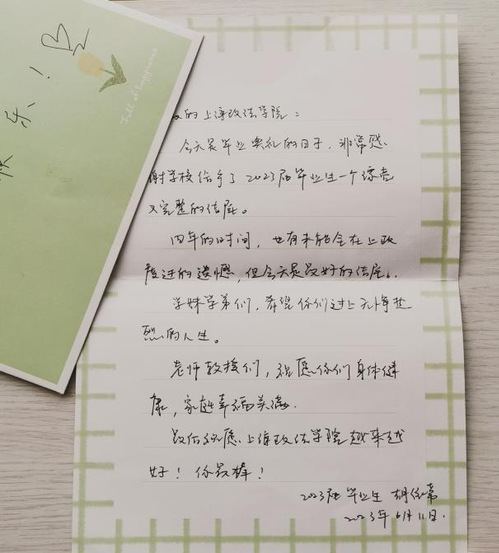 乐！
Full of happiness
的上海政法学院：
今天是毕业典礼的日子，非常感
谢学校给予了2023届毕业生一个漂亮
又完整的结尾。
四年的时间，也有未能全在上政
度过的遗憾，但今天是最好的结尾。
学妹学弟们，希望你们过上无悔热
烈的人生。
老师教授们，祝愿你们身体健
康，家庭幸福美满.
最后祝愿上海政法学院越来越
好！你最棒！
2023届毕业生 胡
2023年6月11日.